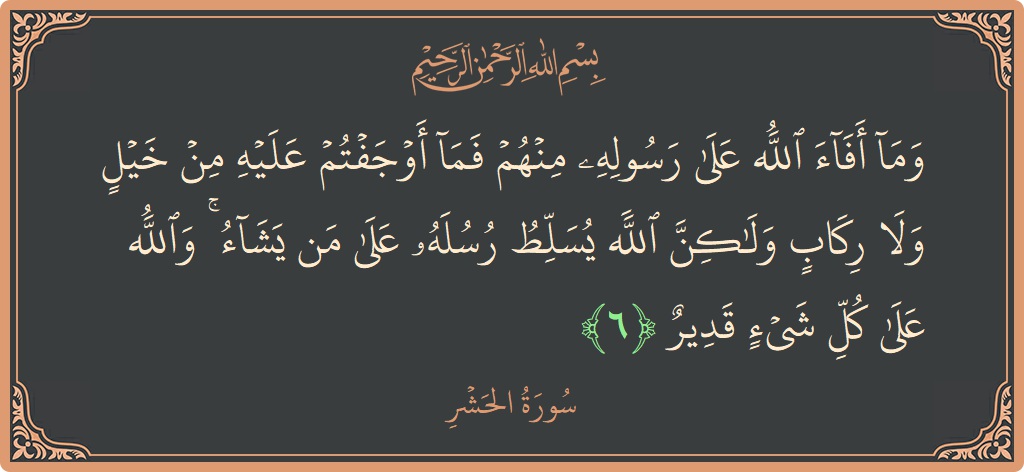 بِسْمِ اللهِ الرَّحْمٰنِ الرَّحِيْمِ
وَمَآ أَفَآءَ ٱللَّهُ عَلَىٰ رَسُولِهِۦ مِنْهُمْ فَمَآ أَوْجَفْتُمْ عَلَيْهِ مِنْ خَيْلٍ
وَلَا رِكَابٍ وَلَـٰكِنَّ ٱللَّهَ يُسَلِّطُ رُسُلَهُۥ عَلَىٰ مَن يَشَآءُ ۚ وَٱللَّهُ
عَلَىٰ كُلِّ شَىْءٍ قَدِيرٌ ﴿٦﴾
سُورَةُ الحَشْرِ